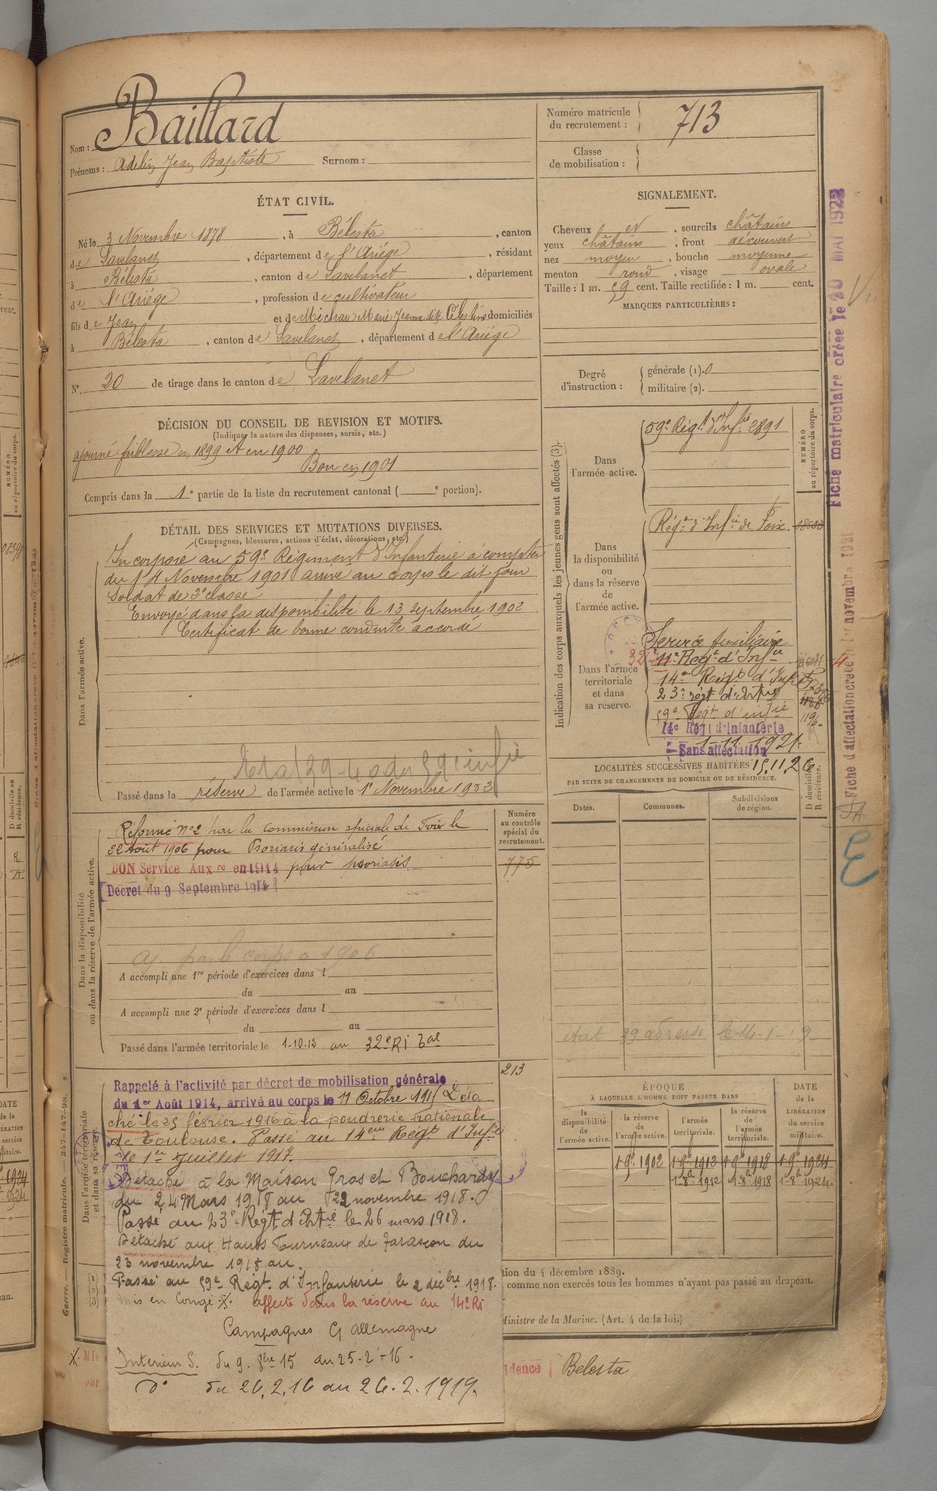 Nom : Baillard
Prénoms : Adelin Jean Baptiste Surnom :
Numéro matricule
du recrutement : 713
Classe
de mobilisation :
ÉTAT CIVIL.
Né le 3 Novembre 1878, à Bélesta, canton
de Lavelanet, département de l'Ariège, résidant
à Bélesta, canton de Lavelanet, département
de l'Ariège, profession de cultivateur
fils de Jean et de Michau Marie Jeanne domiciliés
à Bélesta, canton de Lavelanet, département de l'Ariège
N° 20 de tirage dans le canton de Lavelanet
SIGNALEMENT.
Cheveux et sourcils châtains
yeux châtains, front découvert
nez moyen, bouche moyenne
menton rond, visage ovale
Taille : 1 m. 59 cent. Taille rectifiée : 1 m. cent.
MARQUES PARTICULIÈRES :
Degré
d'instruction :
générale (1). 0
militaire (2).
DÉCISION DU CONSEIL DE REVISION ET MOTIFS.
(Indiquer la nature des dispenses, sursis, etc.)
ajourné faiblesse en 1899 et en 1900
Bon en 1901
Compris dans la 1e partie de la liste du recrutement cantonal ( e portion).
DÉTAIL DES SERVICES ET MUTATIONS DIVERSES.
(Campagnes, blessures, actions d'éclat, décorations, etc.)
Dans l'armée active.
Incorporé au 59e Régiment d'Infanterie à compter
du 14 Novembre 1901 arrivé au corps le dit jour
Soldat de 2e classe
Envoyé dans la disponibilité le 13 Septembre 1902
Certificat de bonne conduite accordé
Passé dans la réserve de l'armée active le 1er Novembre 1902
Indication des corps auxquels les jeunes gens sont affectés (3).
NUMÉRO
au répertoire du corps.
Dans
l'armée active.
59e Régt d'Infie 2891
Dans
la disponibilité
ou
dans la réserve
de
l'armée active.
Régt d'Infie de Foix
Dans l'armée
territoriale
et dans
sa réserve.
Service Auxiliaire
14e Régt d'Inf
23e régt d'artie
59e Régt d'infie
14e Régt d'Infanterie
1-11 1921
Sans affectation
15.11.26
LOCALITÉS SUCCESSIVES HABITÉES
PAR SUITE DE CHANGEMENTS DE DOMICILE OU DE RÉSIDENCE.
Dates.
Communes.
Subdivisions
de région.
D domicile ou
R résidence.
Numéro
au contrôle
spécial du
recrutement.
775
Dans la disponibilité
ou dans la réserve de l'armée active.
Réformé n°2 par la commission spéciale de Foix le
22 Août 1906 pour Psoriasis généralisé
BON Service Auxre en 1914 pour psoriasis
Décret du 9 Septembre 1914
A accompli une 1re période d'exercices dans l
du au
A accompli une 2e période d'exercices dans l
du au
Passé dans l'armée territoriale le 1-10-12 au 32e RI Tal
213
Rappelé à l'activité par décret de mobilisation générale
du 1er Août 1914, arrivé au corps le 11 Octobre 1915 Déta
ché le 25 février 1916 à la poudrerie nationale
de Toulouse. Passé au 14eme Régt d'Infie
le 1er Juillet 1917.
Détaché à la Maison Pros et Bouchardy
du 24 Mars 1918 au 22 novembre 1918.
Passé au 23e Régt d'Artie le 26 mars 1918.
Détaché aux Hauts Fourneaux de Tarascon du
23 novembre 1918 au
Passé au 59e Régt d'Infanterie le 2 décbre 1918.
Mis en Congé X. affecté dans la réserve au 14e RI
Campagnes C/ allemagne
Intérieur S. du 9. 8bre 15 au 25-2-16.
d° du 26.2.16 au 26.2.1919.
ÉPOQUE
À LAQUELLE L'HOMME DOIT PASSER DANS
la
disponibilité
de
l'armée active.
la réserve
de
l'armée active.
l'armée
territoriale.
la réserve
de
l'armée
territoriale.
DATE
de la
LIBÉRATION
du service
militaire.
1-9 1902 1-9 1912 1-9 1918 1-9 1924
1-8 1912 1-8 1918 1-8 1924
tion du 4 décembre 1889.
comme non exercés tous les hommes n'ayant pas passé au drapeau.
Ministre de la Marine. (Art. 4 de la loi.)
idence Belesta
Fiche matriculaire créée le 20 MAI 1923
Fiche d'affectation créée le 1er novembre 1921
E